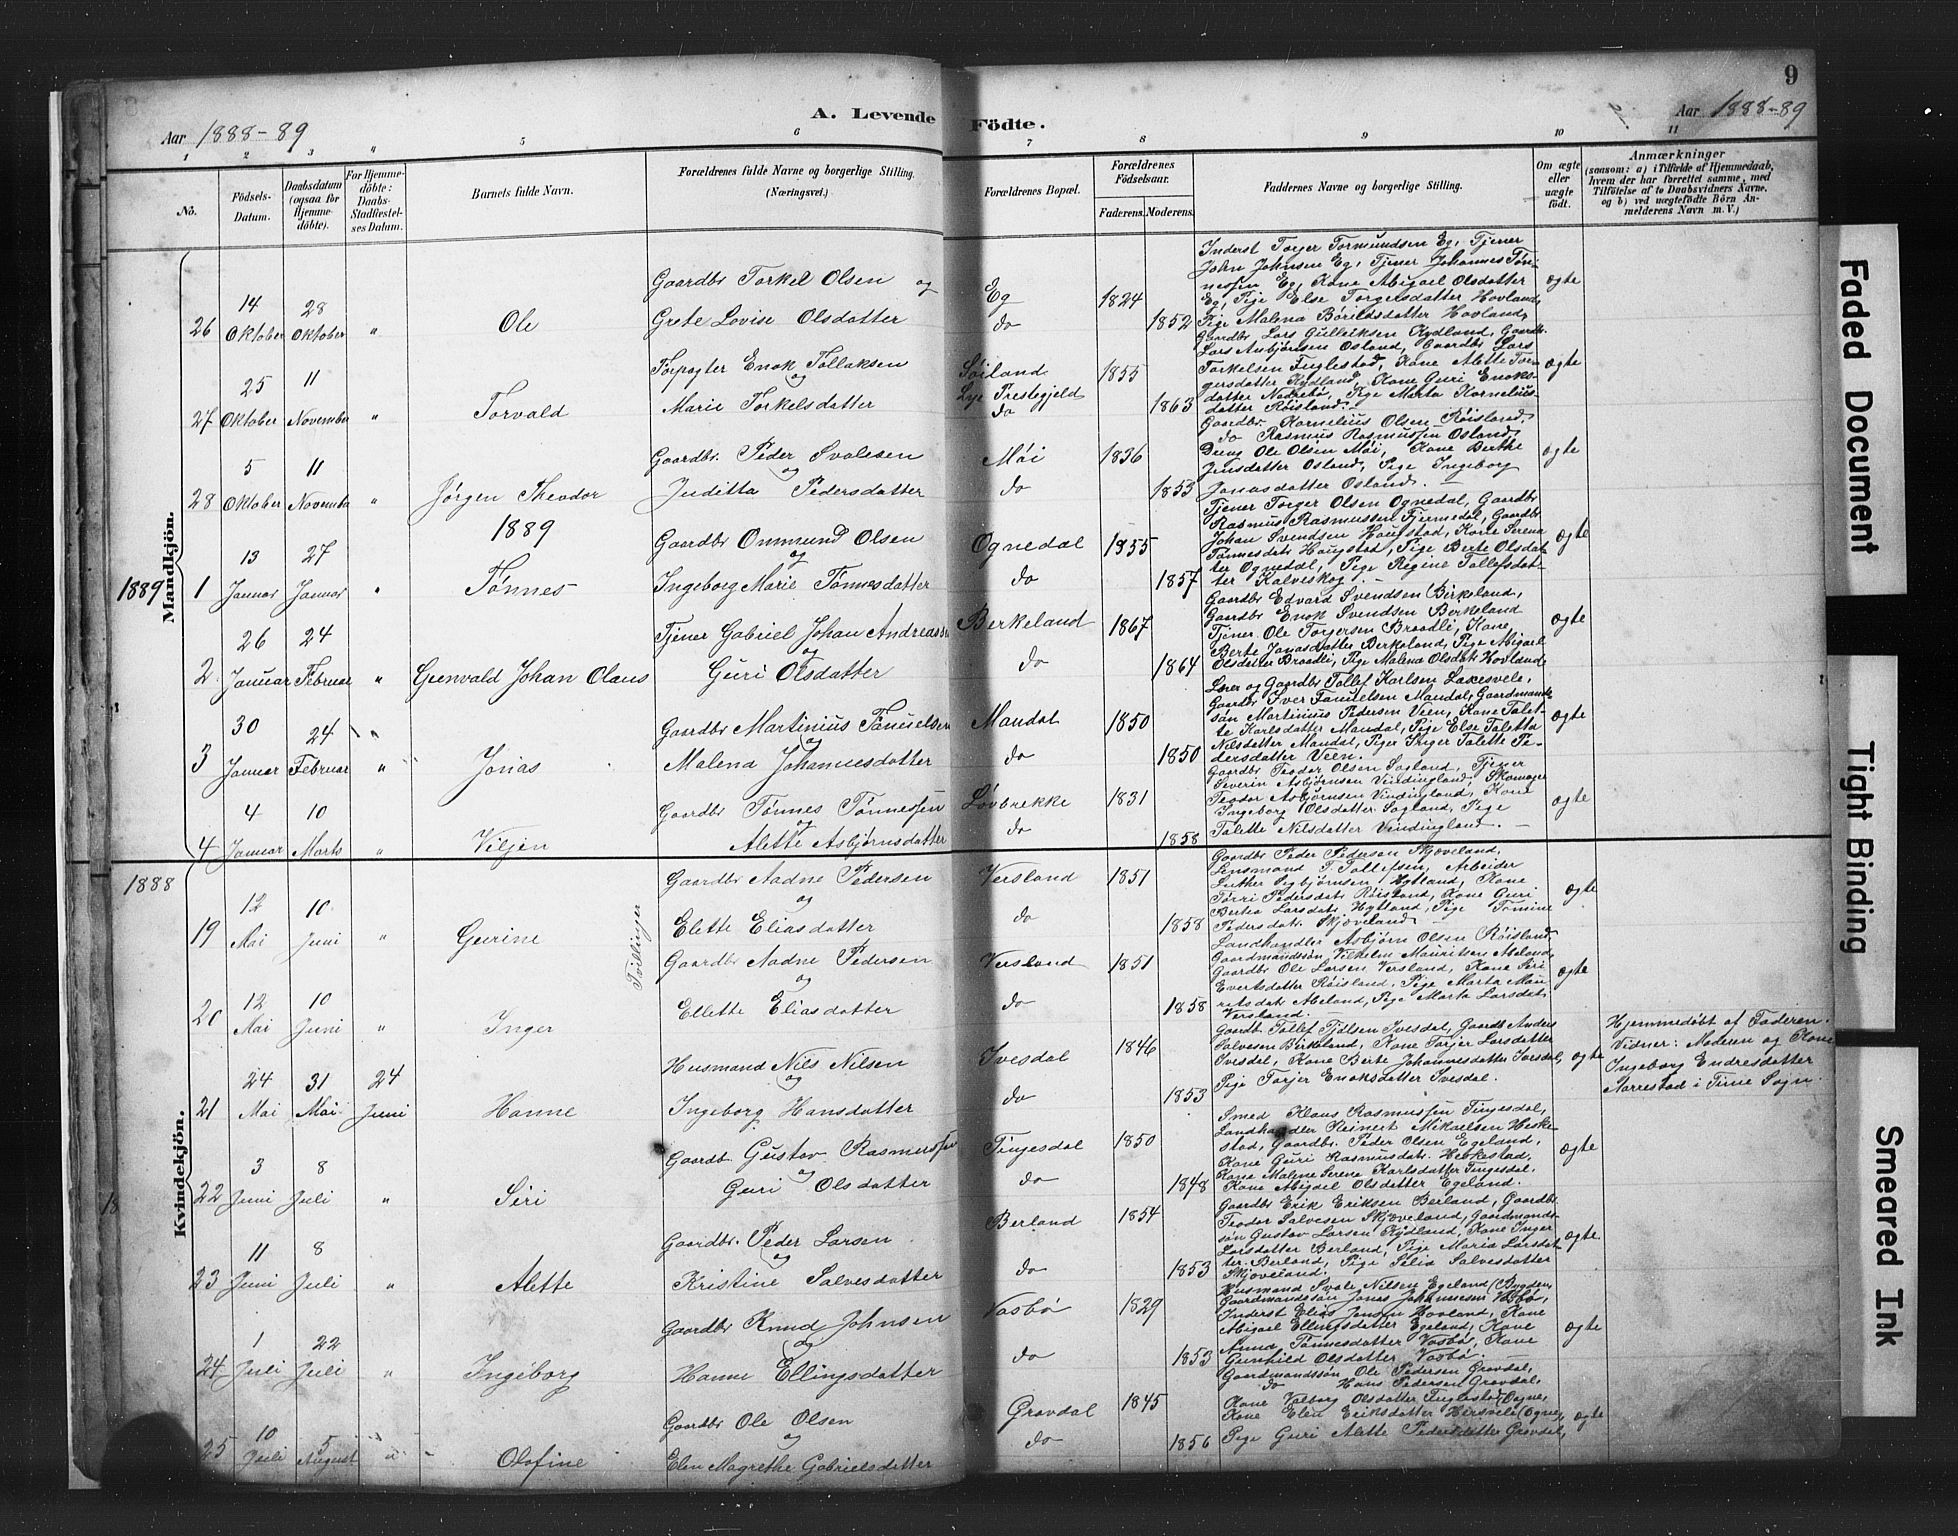 9
A. Levende Födte.
Aar 1888-89
Aar 1888-89
1 2 3 " 5 6 7 8 9 10 11
No.
Födsels-Datum.
Daabsdatum (ogsaa for Hjemme-döbte).
For Hjemme-döbte: Daabs-Stadfæstel-ses Datum.
Barnets fulde Navn.
Forældrenes fulde Navne og borgerlige Stilling. (Næringsvei.)
Forældrenes Bopæl.
Forældrenes Födselsaar.
Faderens. Moderens.
Faddernes Navne og borgerlige Stilling.
Om ægte eller uægte födt.
Anmærkninger
(saasom: a) i Tilfælde af Hjemmedaab,
hvem der har forrettet samme, med
Tilföielse af to Daabsvidners Navne.
og b) ved uægtefödte Börn An-
melderens Navn m. V.)
Mandkjön.
26 14 Oktober 28 Oktober " Ole
Gaardbr Torkel Olsen og
Grete Lovise Olsdatter
Eg do 1824 1852
Inderst Torger Tormundsen Eg, Tjener
John Johnsen Eg, Tjener Johannes Tön-
nessen Eg, Kone Abigael Olsdatter
Eg, Pige Else Torgersdatter Hovland,
Pige Malena Börildsdatter Hovland,
ægte
27 25 Oktober 11 November " Torvald
Forpagter Enok Tollaksen
og
Marie Torkelsdatter
Söiland
Lye Prestegjeld
do 1855 1863
Gaardbr Lars Gulleiksen Kydland, Gaardb.
Lars Asbjörnsen Osland, Gaardbr Lars
Torkelsen Fuglestad, Kone Alette Tor-
gersdatter Kydland, Kone Guri Enoks-
datter Nodrebö, Pige Marta Kornelius-
datter Röisland.
ægte
28 5 Oktober 11 November " Jörgen Theodor
Gaardbr. Peder Svalesen
og
Juditta Pedersdatter
Möi do 1836 1853
Gaardbr. Kornelius Olsen Röisland,
do Rasmus Rasmussen Osland,
Dreng Ole Olsen Möi, Kone Berthe
Jensdatter Osland, Pige Ingeborg
Jonasdatter Osland.
ægte
1889
1889
1 13 Januar 27 Januar " Tönnes
Gaardbr Ommund Olsen
og
Ingeborg Marie Tönnesdatter
Ognedal do 1855 1857
Tjener Torger Olsen Ognedal, Gaardbr
Rasmus Rasmussen Fjermedal, Gaardbr
Johan Svendsen Haugstad, Kone Serena
Tönnesdatr Haugstad, Pige Berte Olsdat-
ter Ognedal, Pige Regine Tollefsdat-
ter Kalveskog.
ægte
2 26 Januar 24 Februar " Gunvald Johan Olaus
Tjener Gabriel Johan Andreassen
og
Guri Olsdatter
Berkeland do 1867 1864
Gaardbr Edvard Svendsen Birkeland,
Gaardbr Enok Svendsen Berkeland
Tjener Ole Torgersen Braadli, Kone
Berte Jonasdatter Berkeland, Pige Abigael
Olsdatter Braadli, Pige Malena Olsdatr Hovland,
ægte
3 30 Januar 24 Februar " Jonas
Gaardbr Martinius Tanuelsen
og
Malena Johannesdatter
Mandal do 1850 1850
Lærer og Gaardbr Tollef Karlsen Lakesvele,
Gaardbr Iver Tanuelsen Mandal, Gaardmands-
sön Martinius Pedersen Veen, Kone Talet-
te Karlsdatter Mandal, Pige Else Taletta
Nilsdatter Mandal, Pige Inger Talette Pe-
dersdatter Veen.
ægte
4 4 Januar 10 Marts " Viljen
Gaardbr Tönnes Tönnessen
og
Alette Asbjörnsdatter
Lövbrekke do 1831 1858
Gaardbr Teodor Olsen Sagland, Tjener
Severin Asbjörnsen Vindingland, Skomager
Teodor Asbjörnsen Vindingland, Kone
Ingeborg Olsdatter Sagland, Pige
Talette Nilsdatter Vindingland.
ægte
1888
Kvindekjön.
19 12 Mai 10 Juni " Gurine
Tvillinger
Gaardbr Aadne Pedersen
og
Elette Eliasdatter
Versland do 1851 1858
Gaardbr Peder Pedersen Skjæveland,
Lensmand T. Tollefsen, Arbeider
Luther Sigbjörnsen Hytland, Kone
Torri Pedersdatr Röisland, Kone Guri
Bertea Larsdatr Hytland, Pige Tomine
Pedersdatr Skjæveland.
ægte
20 12 Mai 10 Juni " Inger
Gaardbr Aadne Pedersen
og
Ellette Eliasdatter
Versland do 1851 1858
Landhandler Asbjörn Olsen Röisland,
Gaardmandssön Vilhelm Mauritsen Aaland,
Gaardbr Ole Larsen Versland, Kone Siri
Evertsdatter Röisland, Pige Marta Mau-
ritsdatr Aaland, Pige Marta Larsdatr
Versland.
ægte
21 24 Mai 31 Mai 24 Juni Hanne
Husmand Nils Nilsen
og
Ingeborg Hansdatter
Ivesdal do 1846 1853
Gaardb. Tollef Tjölsen Ivesdal, Gaardb Anders
Salvesen Birkeland, Kone Torjer Larsdatter
Ivesdal, Kone Berte Johannesdatter Ivesdal,
Pige Torjer Enoksdatter Ivesdal.
ægte
Hjemmedöbt af Faderen.
Vidner: Moderen og Kone
Ingeborg Endresdatter
Aarrestad i Time Sogn.
22 3 Juni 8 Juli " Siri
Gaardb. Gustav Rasmussen
og
Guri Olsdatter
Tingesdal do 1850 1848
Smed Klaus Rasmussen Tingesdal,
Landhandler Reinert Mikaelsen Heske-
stad, Gaardbr. Peder Olsen Egeland,
Kone Guri Rasmusdatr. Heskestad,
Kone Malene Serene Karlsdatter Tingesdal,
Kone Abigael Olsdatter Egeland.
ægte
23 11 Juni 8 Juli " Alette
Gaardbr. Peder Larsen
og
Kristine Salvesdatter
Berland do 1854 1853
Gaardbr Erik Eriksen Berland, Gaardbr
Teodor Salvesen Skjæveland, Gaardmands-
sön Gustav Larsen Kydland, Kone Inger
Larsdatter Berland, Pige Maria Larsdat-
ter Berland, Pige Silia Salvesdatter
Skjæveland.
ægte
24 1 Juli 22 Juli " Ingeborg
Gaardbr Knud Johnsen
og
Hanne Ellingsdatter
Vasbö do 1829 1853
Husmand Svale Nilsen Egeland (Bygden,
Gaardmandssön Jonas Johannesen Vasbö,
Inderst Elias Jensen Hovland, Kone
Abigael Ellingsdatter Egeland, Kone
Anna Tönnesdatter Vasbö, Kone
Gunhild Olsdatter Vasbö.
ægte
25 10 Juli 5 August " Olofine
Gaardbr Ole Olsen
og
Elen Magrethe Gabrielsdatter
Gravdal do 1845 1856
Gaardmandssön Ole Pedersen Gravdal,
do Hans Pedersen Gravdal,
Kone Valborg Olsdatter Fuglestad (Ogne,
Kone Elen Eriksdatter Hirsvele (Ogne,
Pige Guri Alette Pedersdatter Gravdal,
ægte
Faded Document
Tight Binding
Smeared Ink